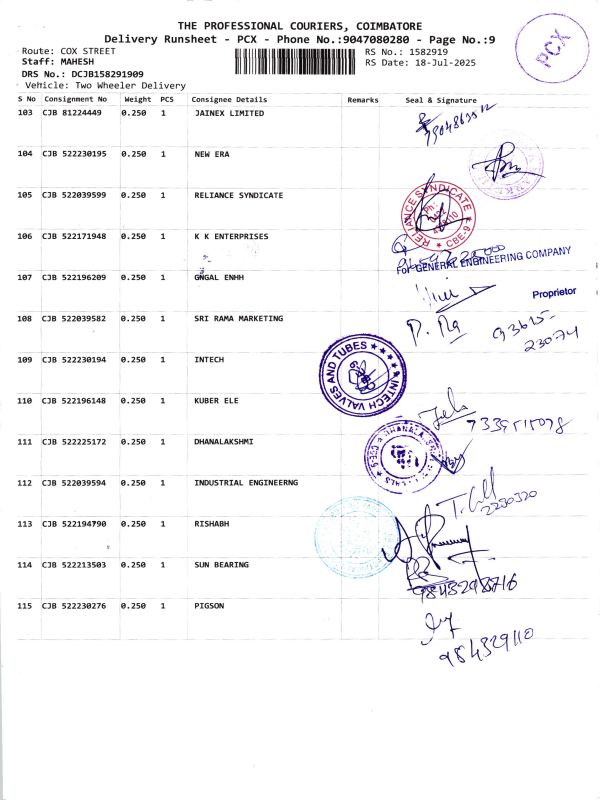 THE PROFESSIONAL COURIERS, COIMBATORE
Delivery Runsheet - PCX - Phone No.:9047080280 - Page No.:9
Route: COX STREET RS No.: 1582919
Staff: MAHESH RS Date: 18-Jul-2025
DRS No.: DCJB158291909
Vehicle: Two Wheeler Delivery
PCX
S No Consignment No Weight PCS Consignee Details Remarks Seal & Signature
103 CJB 81224449 0.250 1 JAINEX LIMITED
104 CJB 522230195 0.250 1 NEW ERA
105 CJB 522039599 0.250 1 RELIANCE SYNDICATE
RELIANCE SYNDICATE CBE-9
106 CJB 522171948 0.250 1 K K ENTERPRISES
For GENERAL ENGINEERING COMPANY
107 CJB 522196209 0.250 1 GNGAL ENHH
Proprietor
108 CJB 522039582 0.250 1 SRI RAMA MARKETING
93615-
23074
109 CJB 522230194 0.250 1 INTECH
INTECH VALVES AND TUBES
110 CJB 522196148 0.250 1 KUBER ELE
111 CJB 522225172 0.250 1 DHANALAKSHMI
112 CJB 522039594 0.250 1 INDUSTRIAL ENGINEERNG
2230320
113 CJB 522194790 0.250 1 RISHABH
114 CJB 522213503 0.250 1 SUN BEARING
9843298716
115 CJB 522230276 0.250 1 PIGSON
984329110